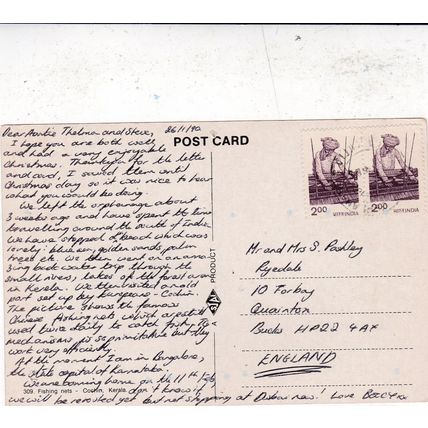 26/1/90
Dear Auntie Thelma and Steve,
I hope you are both well
and had a very enjoyable
Christmas. Thankyou for the letter
and card, I saved them until
Christmas day so it was nice to hear
what you would be doing.
We left the orphanage about
3 weeks ago and have spent the time
travelling around the south of India.
We have stopped at beach which was
lovely: blue sea, golden sands, palm
trees etc. We then went on an ama-
zing back water trip through the
small rivers, lakes of the forest area
in Kerala. We then visited an old
part set up by Europeans - Cochin.
The picture shows the famous
Chinese fishing nets which are still
used twice daily to catch fish. The
mechanism is so primitive but they
work very efficiently.
At the moment I am in Bangalore,
the state capital of Karnataka.
We are coming home on the 11th Feb
309. Fishing nets - Cochin, Kerala
don't know if
we will be rerouted yet but not stopping at Dubai now! Love
POST CARD
PRODUCT
2.00
भारत INDIA
2.00
भारत INDIA
Mr and Mrs S. Pashley
Ryedale
10 Torbay
Quainton
Bucks HP22 4AX
ENGLAND